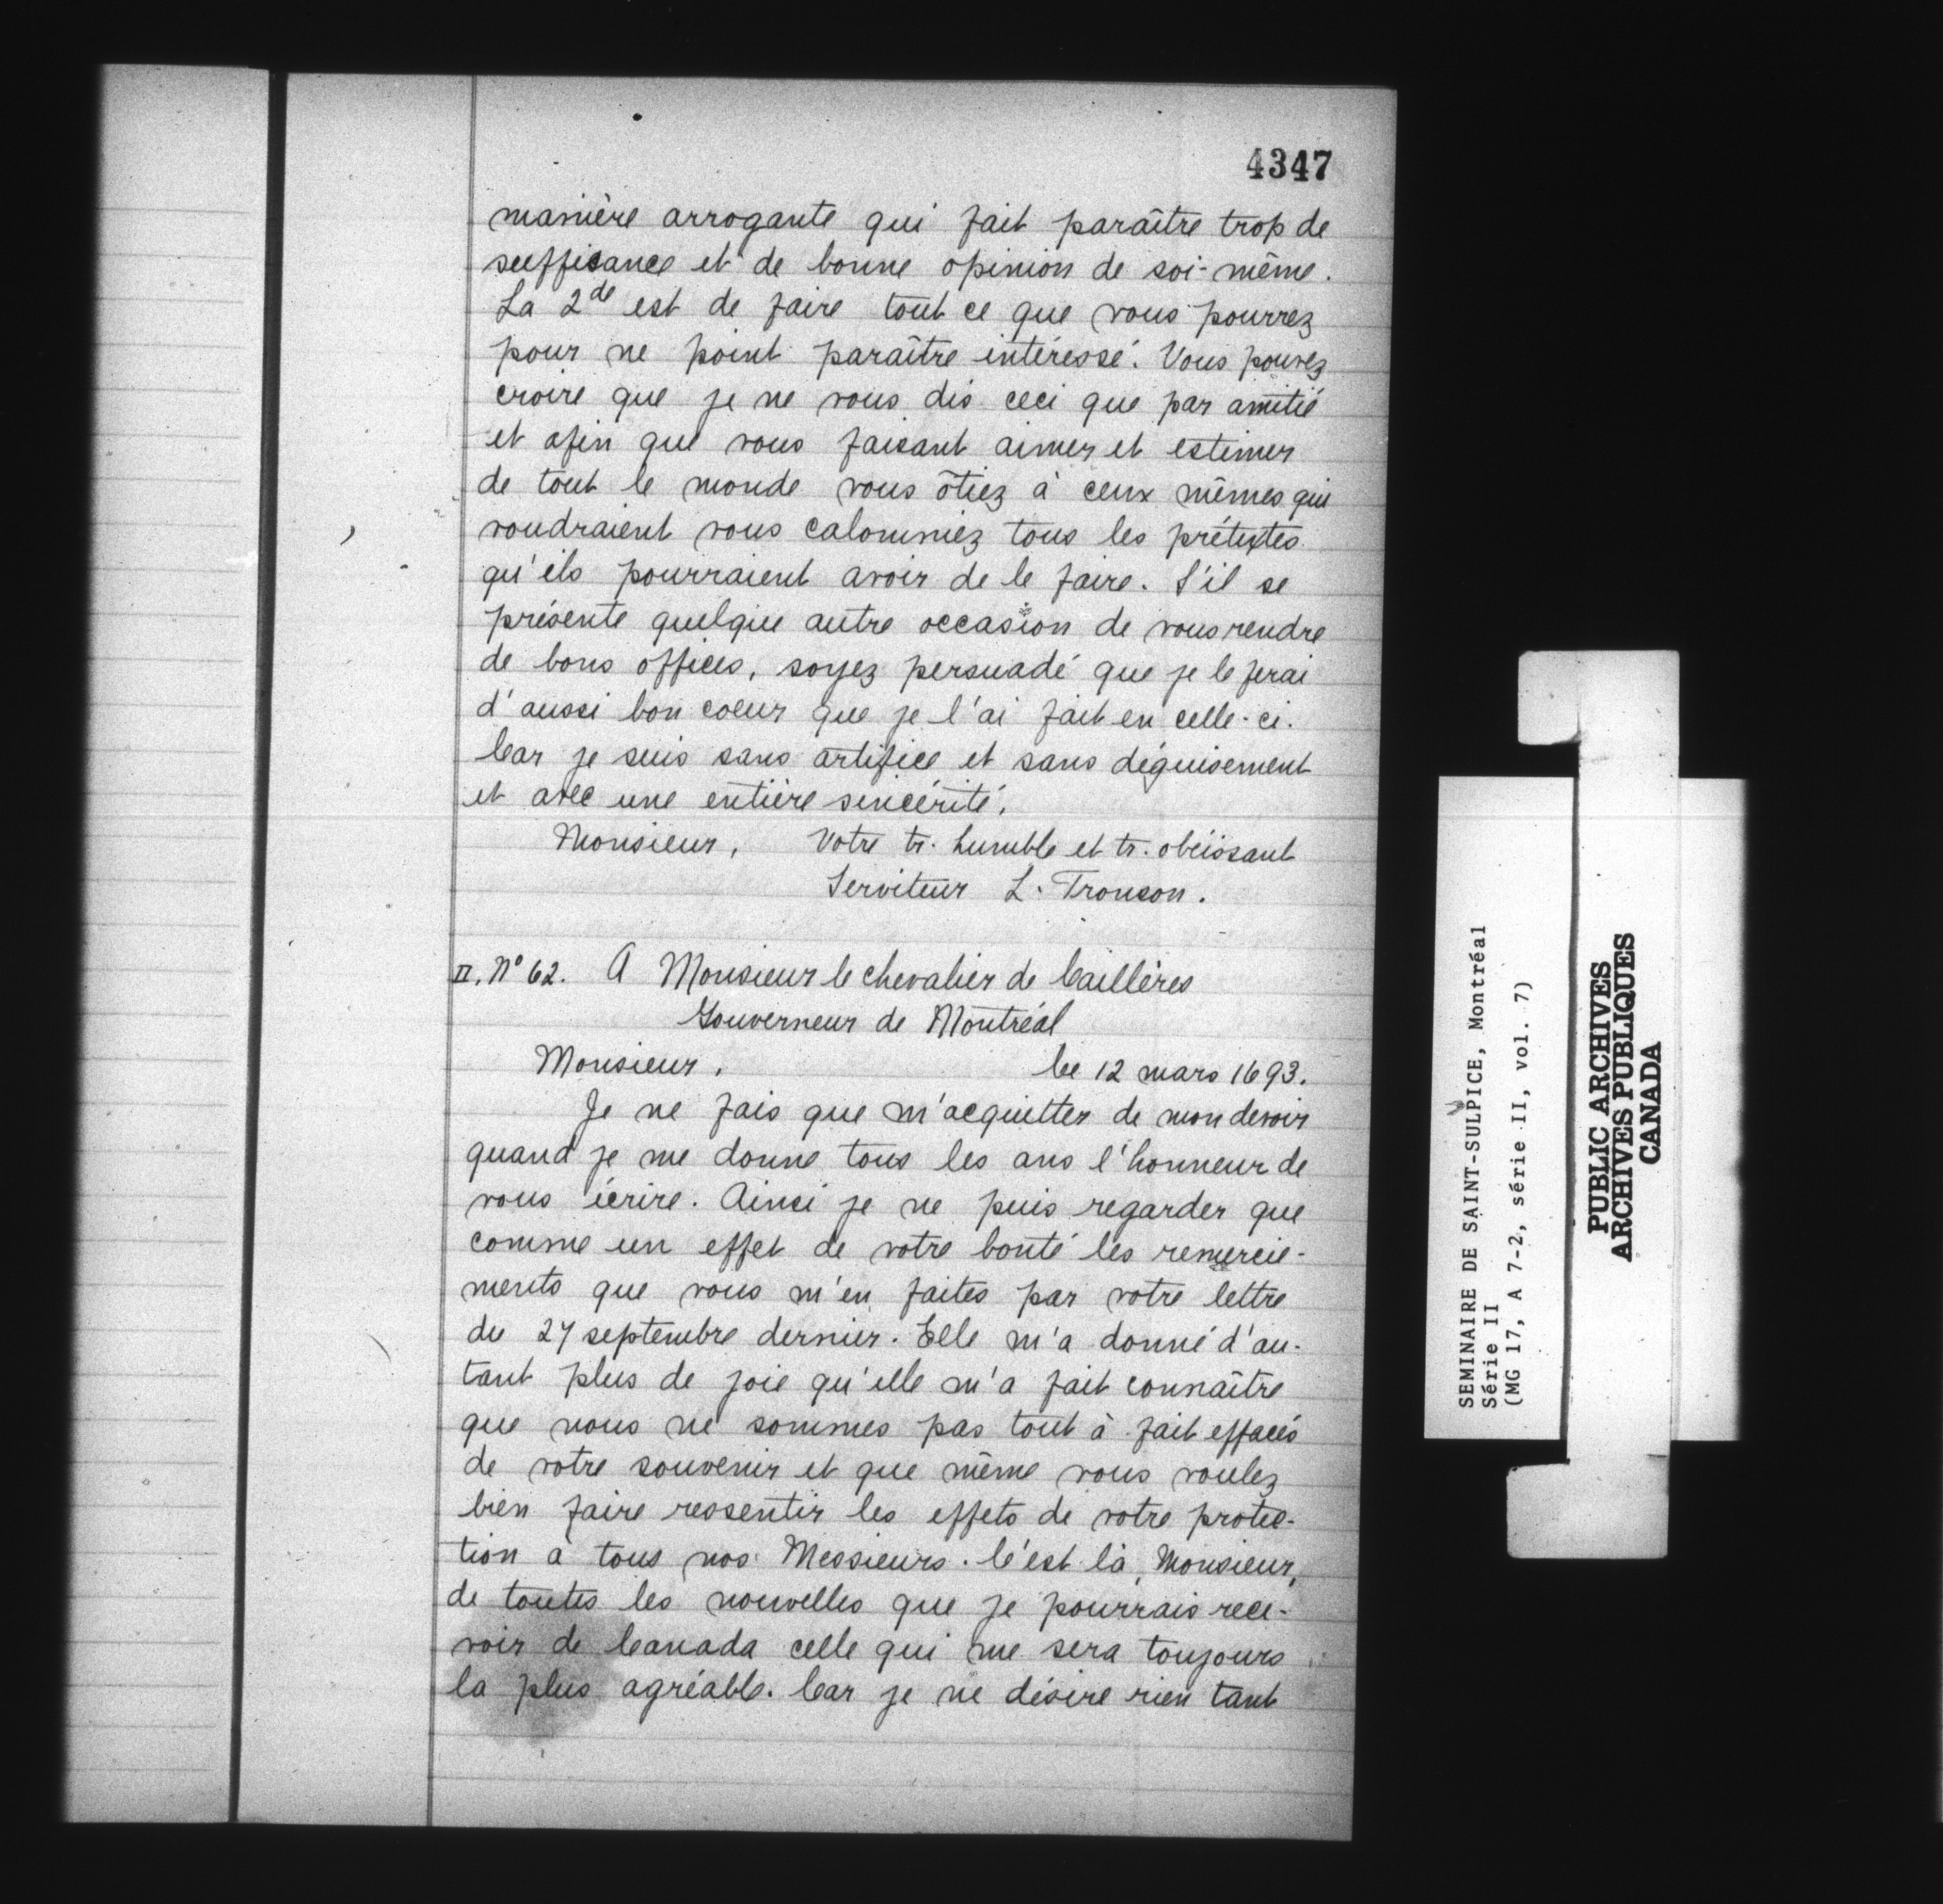 4347
manière arrogante qui fait paraître trop de
suffisance et de bonne opinion de soi-même.
La 2de est de faire tout ce que vous pourrez
pour ne point paraître intéressé. Vous pouvez
croire que je ne vous dis ceci que par amitié
et afin que vous faisant aimer et estimer
de tout le monde vous ôtiez à ceux mêmes qui
voudraient vous calomniez tous les prétextes
qu'ils pourraient avoir de le faire. S'il se
présente quelque autre occasion de vous rendre
de bons offices, soyez persuadé que je le ferai
d'aussi bon coeur que je l'ai fait en celle-ci.
Car je suis sans artifice et sans déguisement
et avec une entière sincérité.
Monsieur, Votre tr. humble et tr. obéissant
Serviteur L. Tronson.
II. N° 62. A Monsieur le chevalier de Caillères
Gouverneur de Montréal
Monsieur, Ce 12 mars 1693.
Je ne fais que m'acquitter de mon devoir
quand je me donne tous les ans l'honneur de
vous écrire. Ainsi je ne puis regarder que
comme un effet de votre bonté les remercie-
ments que vous m'en faites par votre lettre
du 27 septembre dernier. Elle m'a donné d'au-
tant plus de joie qu'elle m'a fait connaître
que nous ne sommes pas tout à fait effacés
de votre souvenir et que même vous voulez
bien faire ressentir les effets de votre protec-
tion à tous nos Messieurs. C'est là, Monsieur,
de toutes les nouvelles que je pourrais rece-
voir de Canada celle qui me sera toujours
la plus agréable. Car je ne désire rien tant
SEMINAIRE DE SAINT-SULPICE, Montréal
Série II
(MG 17, A 7-2, série II, vol. 7)
PUBLIC ARCHIVES
ARCHIVES PUBLIQUES
CANADA